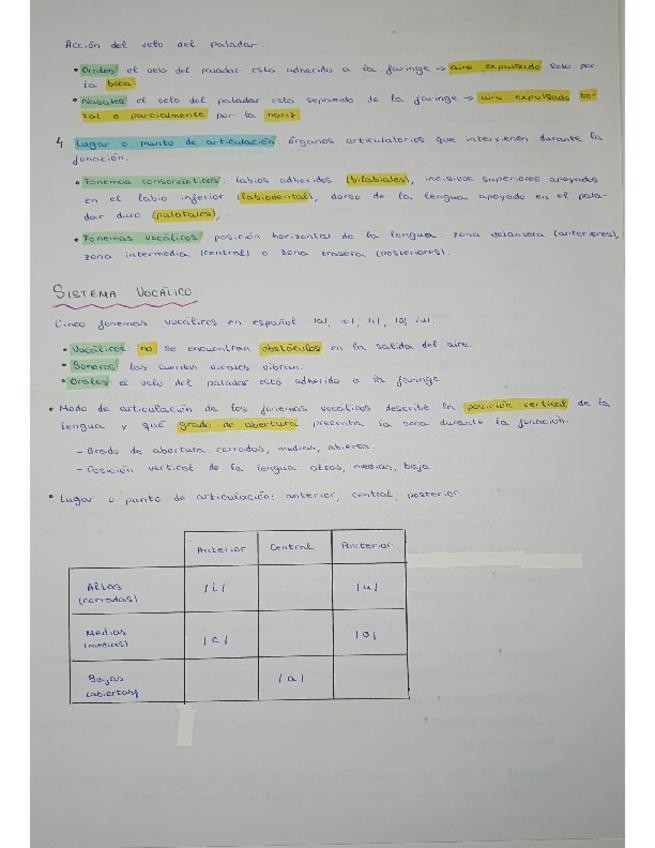 Acción del velo del paladar.
• Orales: el velo del paladar está adherido a la faringe → aire expulsado solo por
la boca.
• Nasales: el velo del paladar está separado de la faringe → aire expulsado to-
tal o parcialmente por la nariz
4. Lugar o punto de articulación: órganos articulatorios que intervienen durante la
fonación.
• Fonemas consonánticos: labios adheridos (bilabiales), incisivos superiores apoyados
en el labio inferior (labiodental), dorso de la lengua apoyado en el pala-
dar duro (palatales), ...
• Fonemas vocálicos: posición horizontal de la lengua: zona delantera (anteriores),
zona intermedia (central) o zona trasera (posteriores).
SISTEMA VOCÁLICO
Cinco fonemas vocálicos en español: |a|, |e|, |i|, |o|, |u|.
• Vocálicos: no se encuentran obstáculos en la salida del aire.
• Sonoros: las cuerdas vocales vibran.
• Orales: el velo del paladar está adherido a la faringe
• Modo de articulación de los fonemas vocálicos describe la posición vertical de la
lengua y qué grado de abertura presenta la boca durante la fonación.
- Grado de abertura: cerradas, medias, abierta.
- Posición vertical de la lengua: altas, medias, baja
• Lugar o punto de articulación: anterior, central, posterior.
Anterior Central Posterior
Altas |i| |u|
(cerradas)
Medias |e| |o|
(medias)
Bajas |a|
(abiertas)